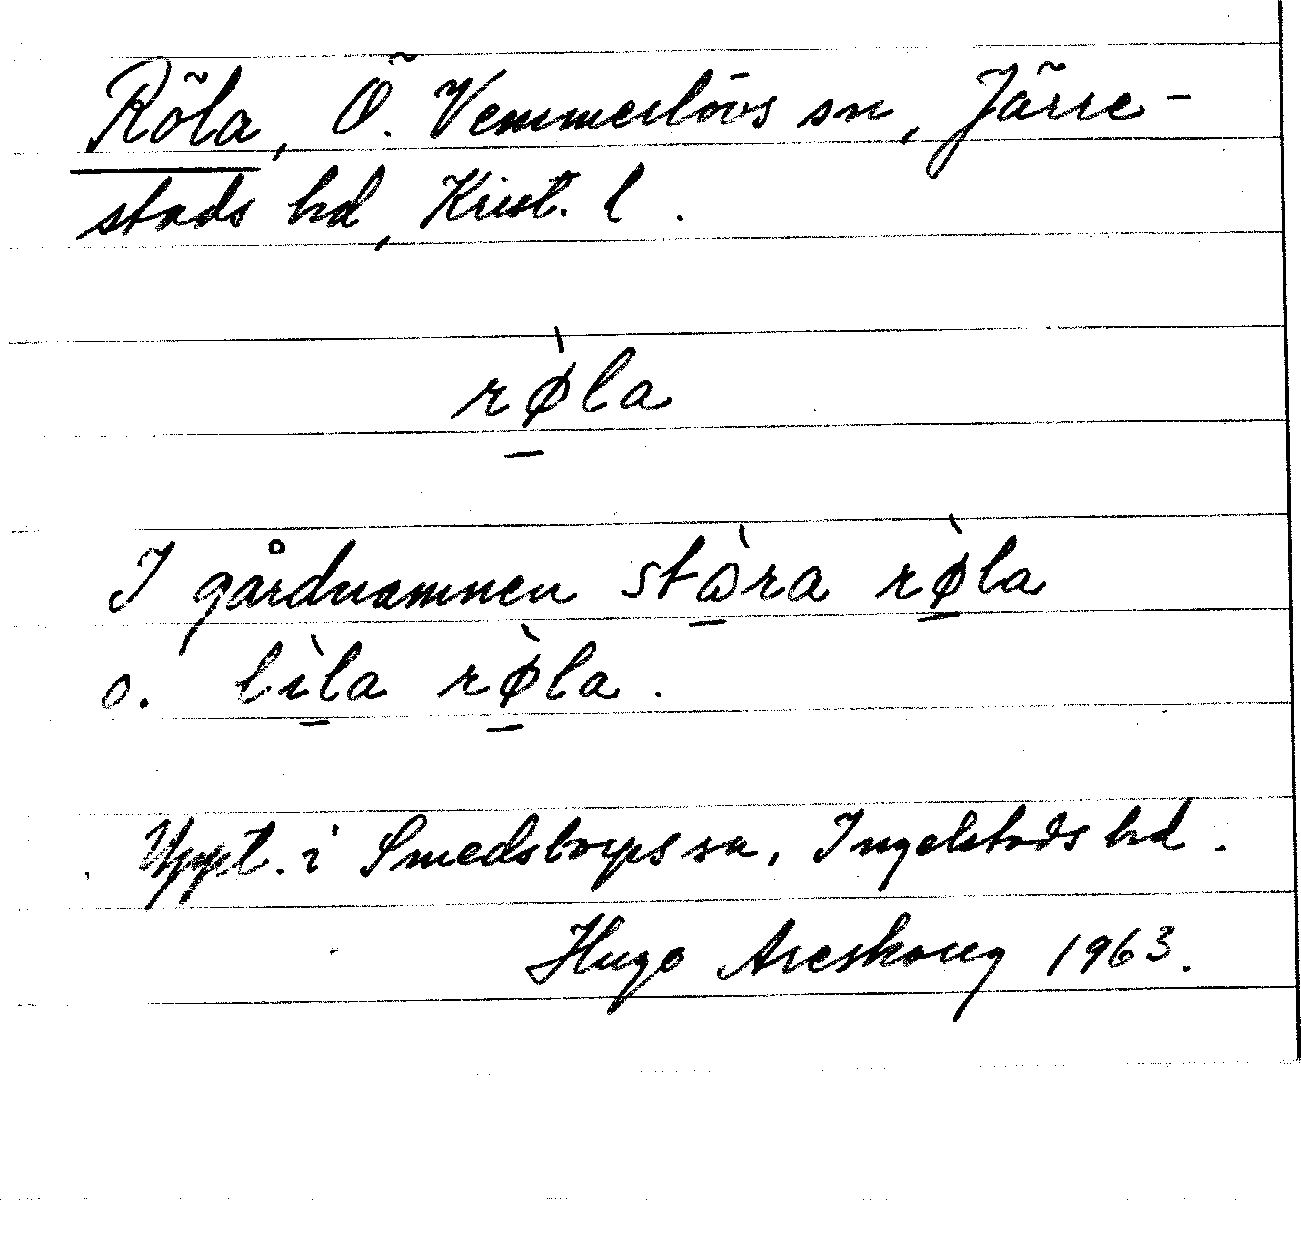 Röla, Ö. Vemmerlövs sn, Järre-
stads hd, Krist. l.
rø̀la
I gårdnamnen stɷ̀ra rø̀la
o. lìla rø̀la.
Uppt. i Smedstorps sn, Ingelstads hd.
Hugo Areskoug 1963.